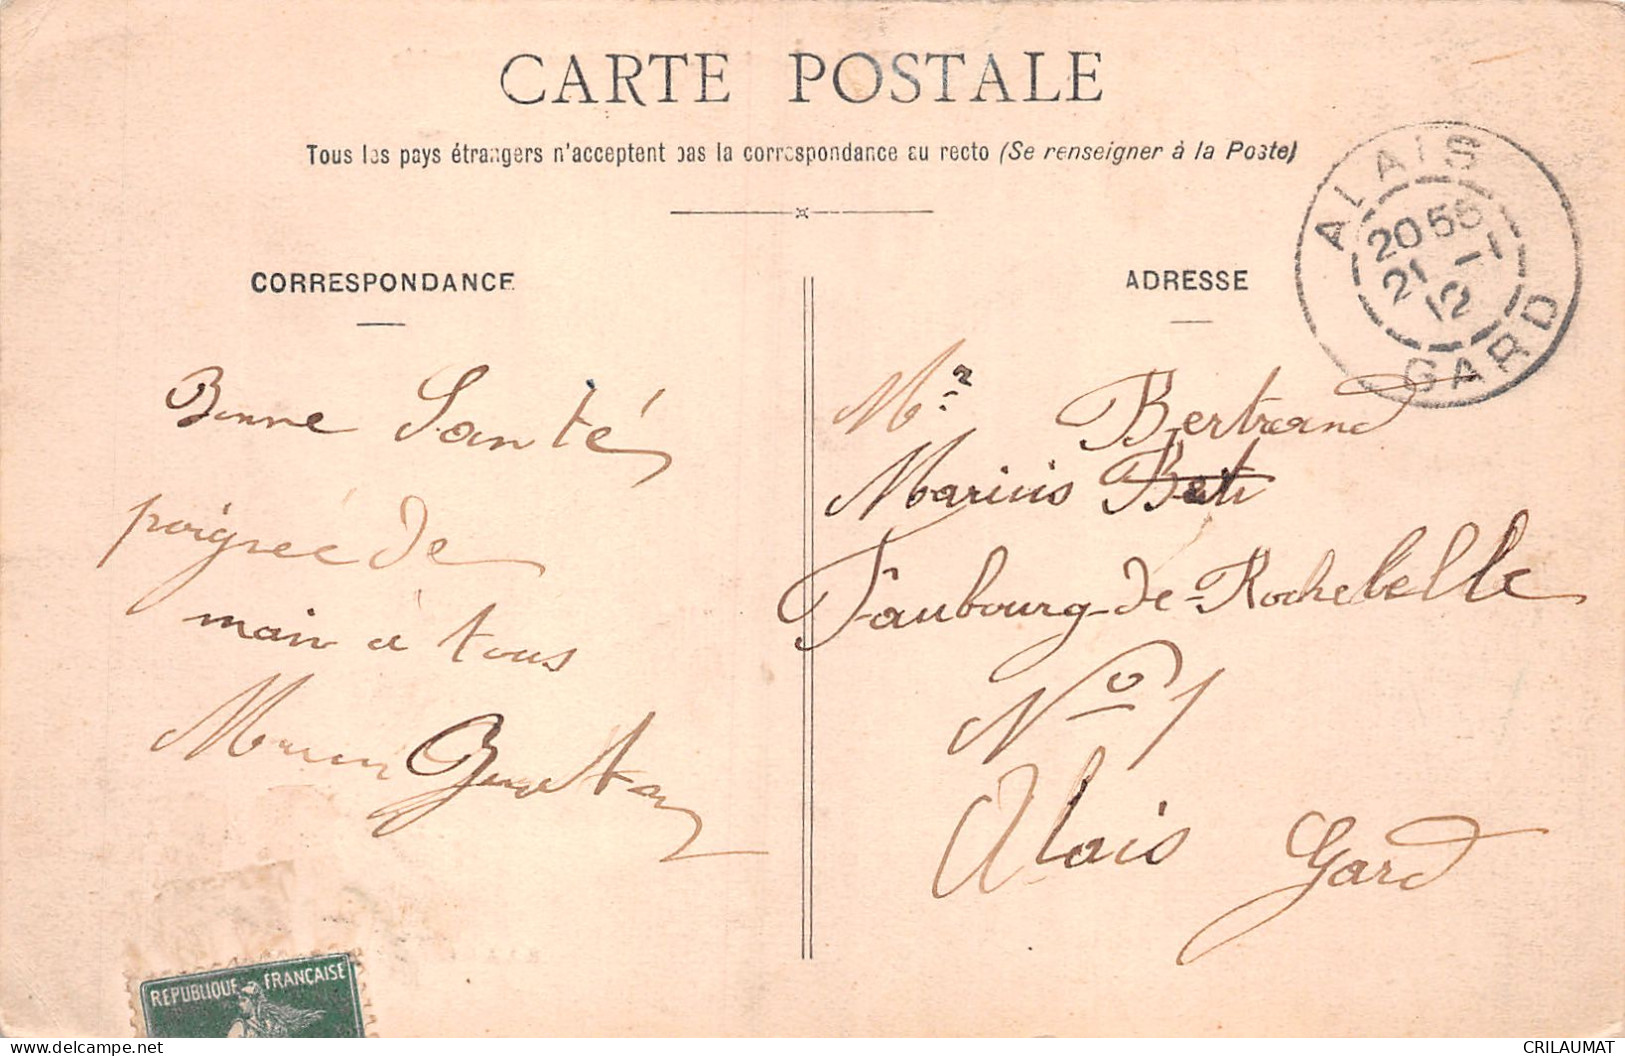 CARTE POSTALE
Tous les pays étrangers n'acceptent pas la correspondance au recto (Se renseigner à la Poste)
CORRESPONDANCE
Bonne Santé
poignée de
main à tous
ADRESSE
Mr Bertrand
Marius
Faubourg-de-Rochebelle
No 1
Alais Gard
ALAIS
20 55
21 -1
12
GARD
REPUBLIQUE FRANÇAISE
www.delcampe.net
CRILAUMAT